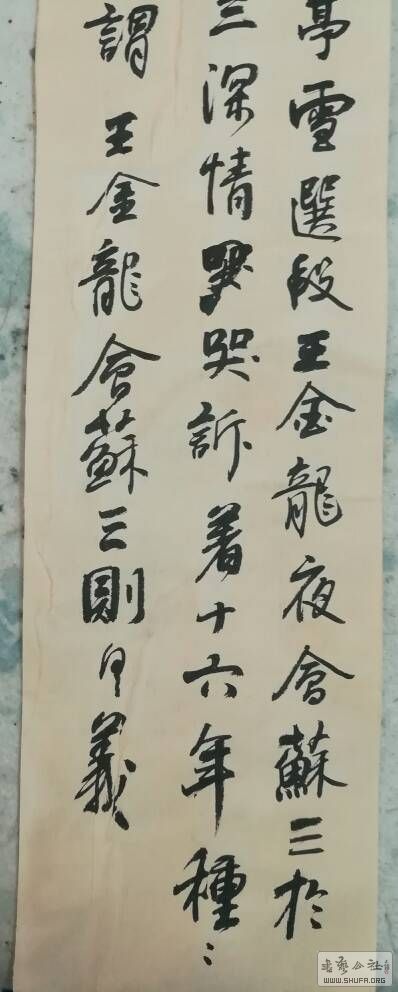 亭雪選段王金龍夜會蘇三於
三深情哭訴着十六年種〻
謂王金龍會蘇三義
书艺公社
WWW.SHUFA.ORG